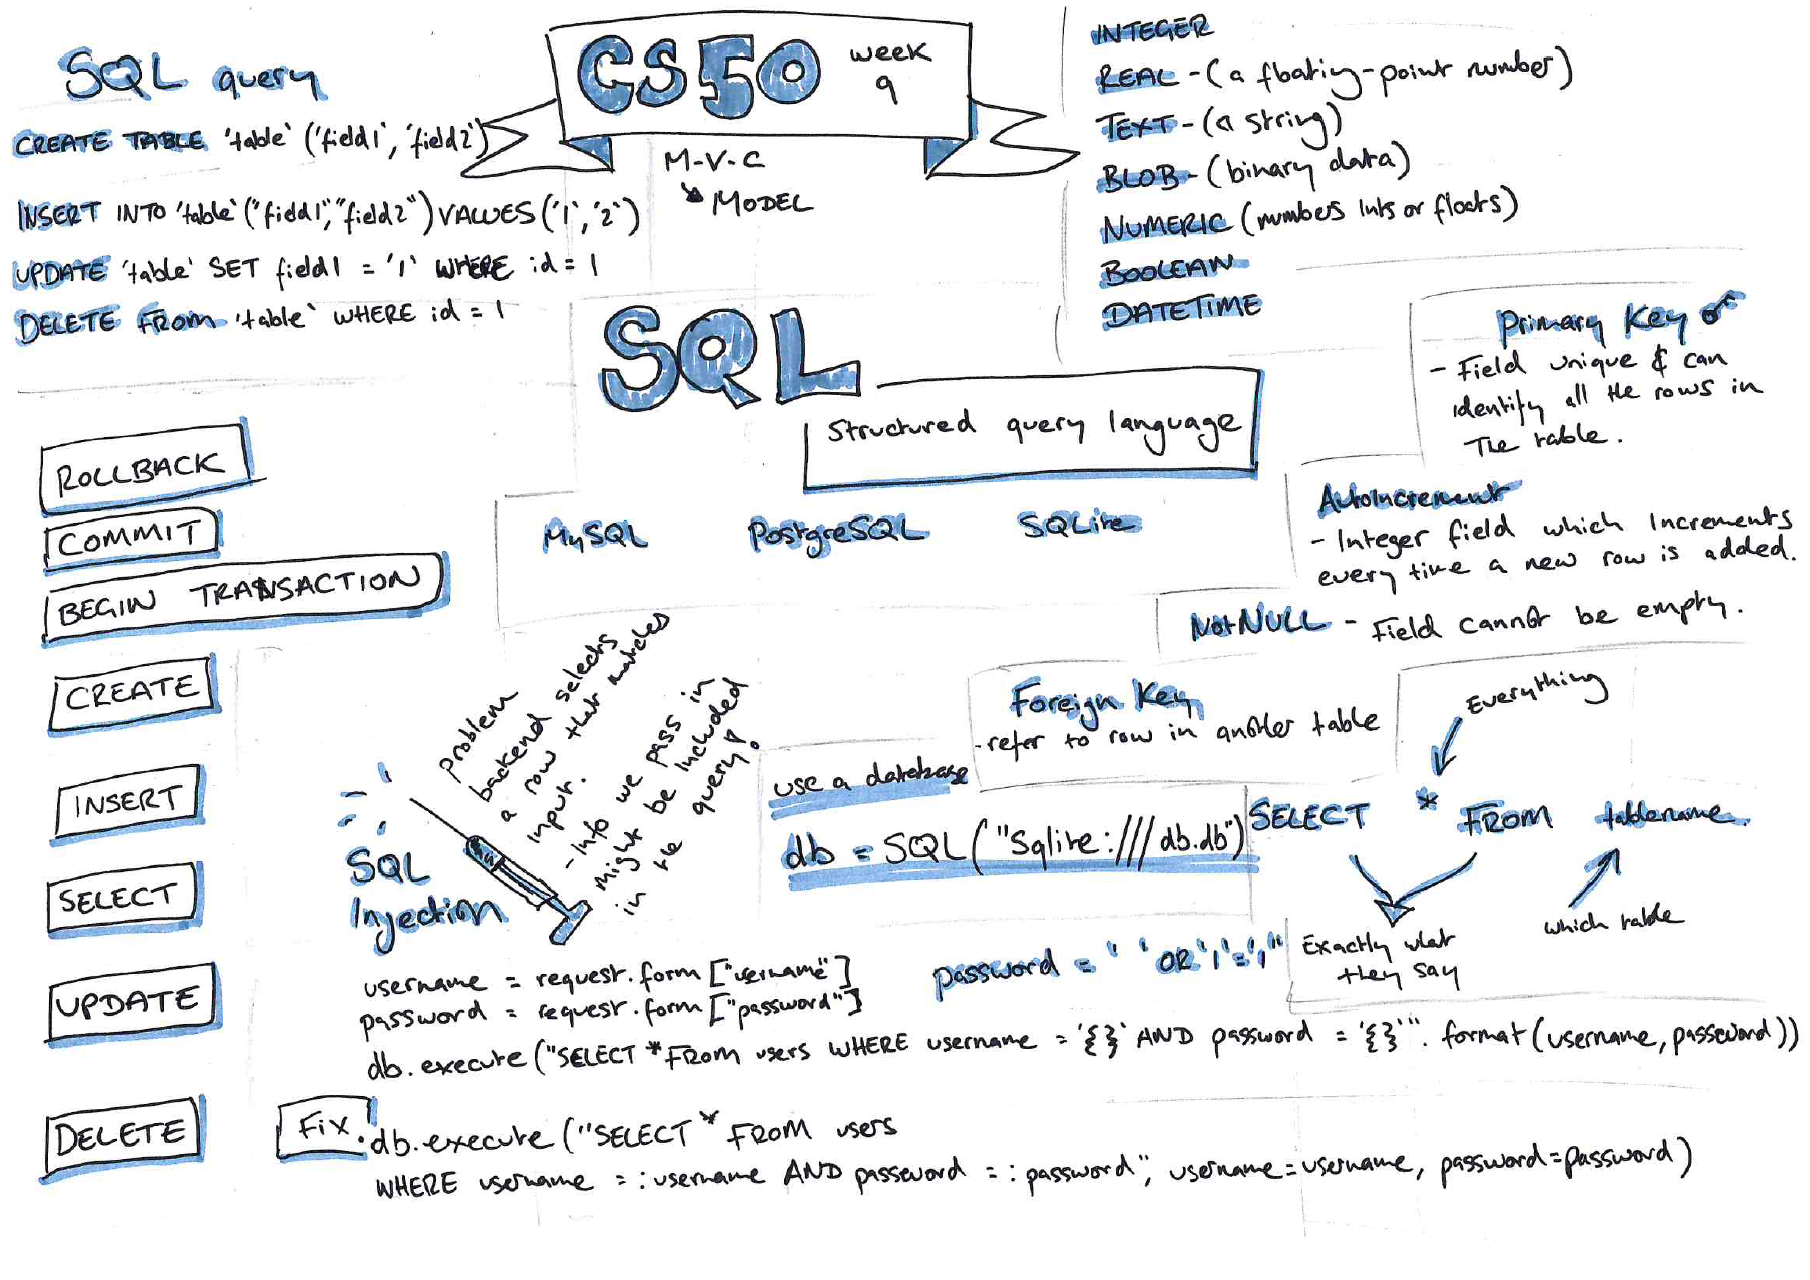 SQL query
CREATE TABLE 'table' ('field1', 'field2')
INSERT INTO 'table' ("field1","field2") VALUES ('1','2')
UPDATE 'table' SET field1 = '1' WHERE id = 1
DELETE FROM 'table' WHERE id = 1
CS50 week
9
M-V-C
MODEL
INTEGER
REAL - (a floating-point number)
TEXT - (a string)
BLOB - (binary data)
NUMERIC (numbers ints or floats)
BOOLEAN
DATETIME
SQL
Structured query language
MySQL PostgreSQL SQLite
Primary Key
- Field unique & can
identify all the rows in
The table.
AutoIncrement
- Integer field which Increments
every time a new row is added.
Not NULL - Field cannot be empty.
Foreign Key
- refer to row in another table
ROLLBACK
COMMIT
BEGIN TRANSACTION
CREATE
INSERT
SELECT
UPDATE
DELETE
SQL
Injection
problem
backend selects
a row that matches
input.
- Info we pass in
might be included
in the query!
use a database
db = SQL("Sqlite:///db.db")
Everything
SELECT * FROM tablename.
Exactly what
they say
which table
username = request.form["username"]
password = request.form["password"]
password = ' ' OR '1'='1'"
db.execute("SELECT * FROM users WHERE username = '{}' AND password = '{}'". format(username, password))
Fix.
db.execute("SELECT * FROM users
WHERE username = :username AND password = :password", username=username, password=password)